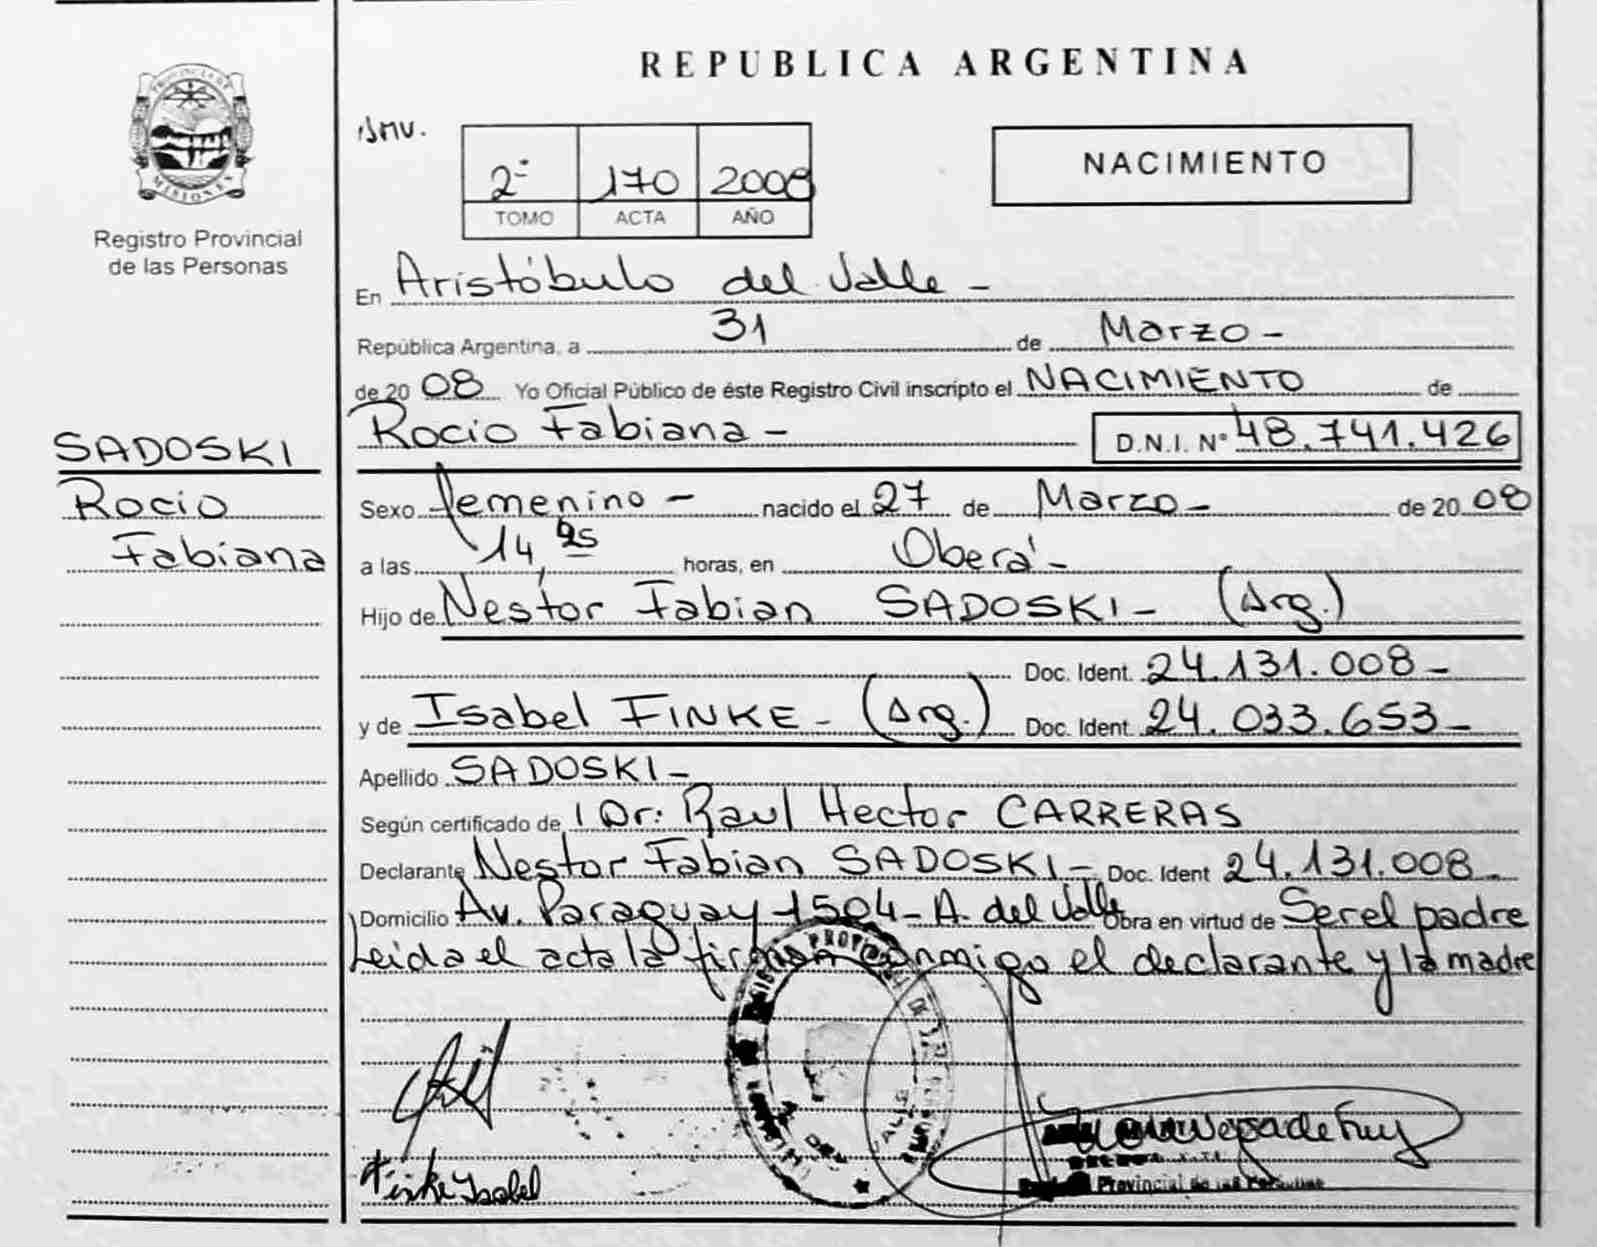 REPUBLICA ARGENTINA
PROVINCIA DE
MISIONES
Registro Provincial
de las Personas
NACIMIENTO
2ª 170 2008
TOMO ACTA AÑO
En Aristóbulo del Valle -
República Argentina, a 31 de Marzo -
de 20 08 Yo Oficial Público de éste Registro Civil inscripto el NACIMIENTO de
Rocio Fabiana - D.N.I. Nº 48.741.426
SADOSKI
Rocio
Fabiana
Sexo femenino - nacido el 27 de Marzo - de 20 08
a las 14, horas, en Oberá -
Hijo de Nestor Fabian SADOSKI - (Arg.)
Doc. Ident. 24.131.008 -
y de Isabel FINKE - (Arg.) Doc. Ident. 24.033.653 -
Apellido SADOSKI -
Según certificado de Dr: Raul Hector CARRERAS
Declarante Nestor Fabian SADOSKI - Doc. Ident 24.131.008 -
Domicilio Av. Paraguay 1504 - A. del Valle Obra en virtud de Ser el padre
Leida el acta la firman conmigo el declarante y la madre
Finke Isabel
Provincial de las Personas